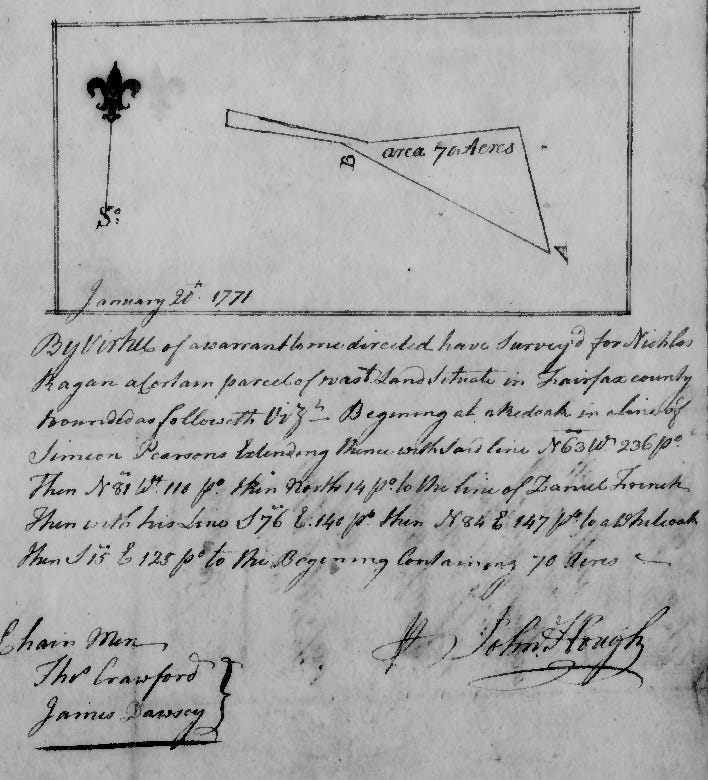 So:
B
area 70 Acres
A
January 20th. 1771
By Virtue of a warrant to me directed have Survey'd for Nichlas
Ragan a Certain parcel of wast Land Situate in Fairfax county
bounded as followeth Vizt Begining at a Redoak in a line of
Simeon Pearsons Extending thence with said line N 63 Wt 236 po.
Then N 81 Wt 110 po. then North 14 po to the line of Daniel French
Then with his Line S 76 E 140 po then N 84 E 147 po to a Whiteoak
then S 15 E 125 po to the Begining Containing 70 Acres
Chain Men
Thos Crawford
James Dawsey
John Hough